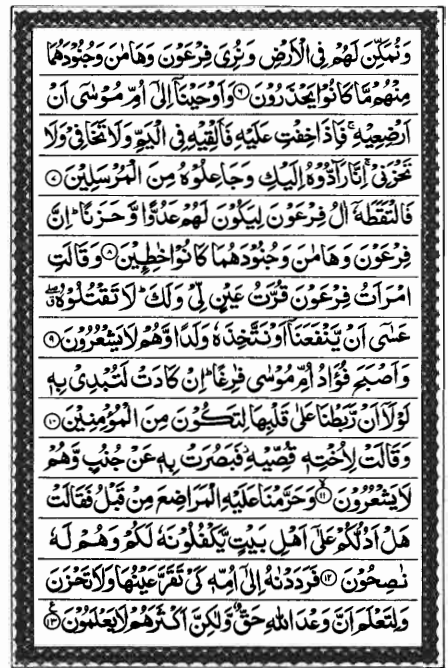 وَنُمَكِّنَ لَهُمْ فِي الْاَرْضِ وَنُرِيَ فِرْعَوْنَ وَهَامٰنَ وَجُنُوْدَهُمَا
مِنْهُمْ مَّا كَانُوْا يَحْذَرُوْنَ ۝۶ وَاَوْحَيْنَاۤ اِلٰۤى اُمِّ مُوْسٰۤى اَنْ
اَرْضِعِيْهِ ۚ فَاِذَا خِفْتِ عَلَيْهِ فَاَلْقِيْهِ فِي الْيَمِّ وَلَا تَخَافِيْ وَلَا
تَحْزَنِيْ ۚ اِنَّا رَآدُّوْهُ اِلَيْكِ وَجَاعِلُوْهُ مِنَ الْمُرْسَلِيْنَ ۝۷
فَالْتَقَطَهٗۤ اٰلُ فِرْعَوْنَ لِيَكُوْنَ لَهُمْ عَدُوًّا وَّحَزَنًا ؕ اِنَّ
فِرْعَوْنَ وَهَامٰنَ وَجُنُوْدَهُمَا كَانُوْا خٰطِـِٕيْنَ ۝۸ وَقَالَتِ
امْرَاَتُ فِرْعَوْنَ قُرَّتُ عَيْنٍ لِّيْ وَلَكَ ؕ لَا تَقْتُلُوْهُ ۖۗ
عَسٰۤى اَنْ يَّنْفَعَنَاۤ اَوْ نَتَّخِذَهٗ وَلَدًا وَّهُمْ لَا يَشْعُرُوْنَ ۝۹
وَاَصْبَحَ فُؤَادُ اُمِّ مُوْسٰى فٰرِغًا ؕ اِنْ كَادَتْ لَتُبْدِيْ بِهٖ
لَوْلَاۤ اَنْ رَّبَطْنَا عَلٰى قَلْبِهَا لِتَكُوْنَ مِنَ الْمُؤْمِنِيْنَ ۝۱۰
وَقَالَتْ لِاُخْتِهٖ قُصِّيْهِ ؗ فَبَصُرَتْ بِهٖ عَنْ جُنُبٍ وَّهُمْ
لَا يَشْعُرُوْنَ ۝۱۱ وَحَرَّمْنَا عَلَيْهِ الْمَرَاضِعَ مِنْ قَبْلُ فَقَالَتْ
هَلْ اَدُلُّكُمْ عَلٰۤى اَهْلِ بَيْتٍ يَّكْفُلُوْنَهٗ لَكُمْ وَهُمْ لَهٗ
نٰصِحُوْنَ ۝۱۲ فَرَدَدْنٰهُ اِلٰۤى اُمِّهٖ كَيْ تَقَرَّ عَيْنُهَا وَلَا تَحْزَنَ
وَلِتَعْلَمَ اَنَّ وَعْدَ اللّٰهِ حَقٌّ وَّلٰكِنَّ اَكْثَرَهُمْ لَا يَعْلَمُوْنَ ۝۱۳ ع